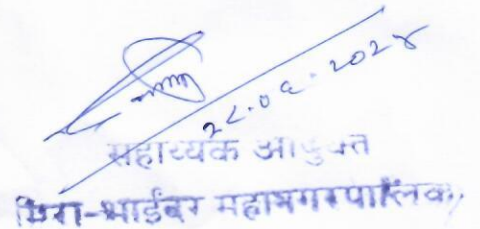 २८.०६.२०२४
सहाय्यक आयुक्त
मिरा-भाईंदर महानगरपालिका,